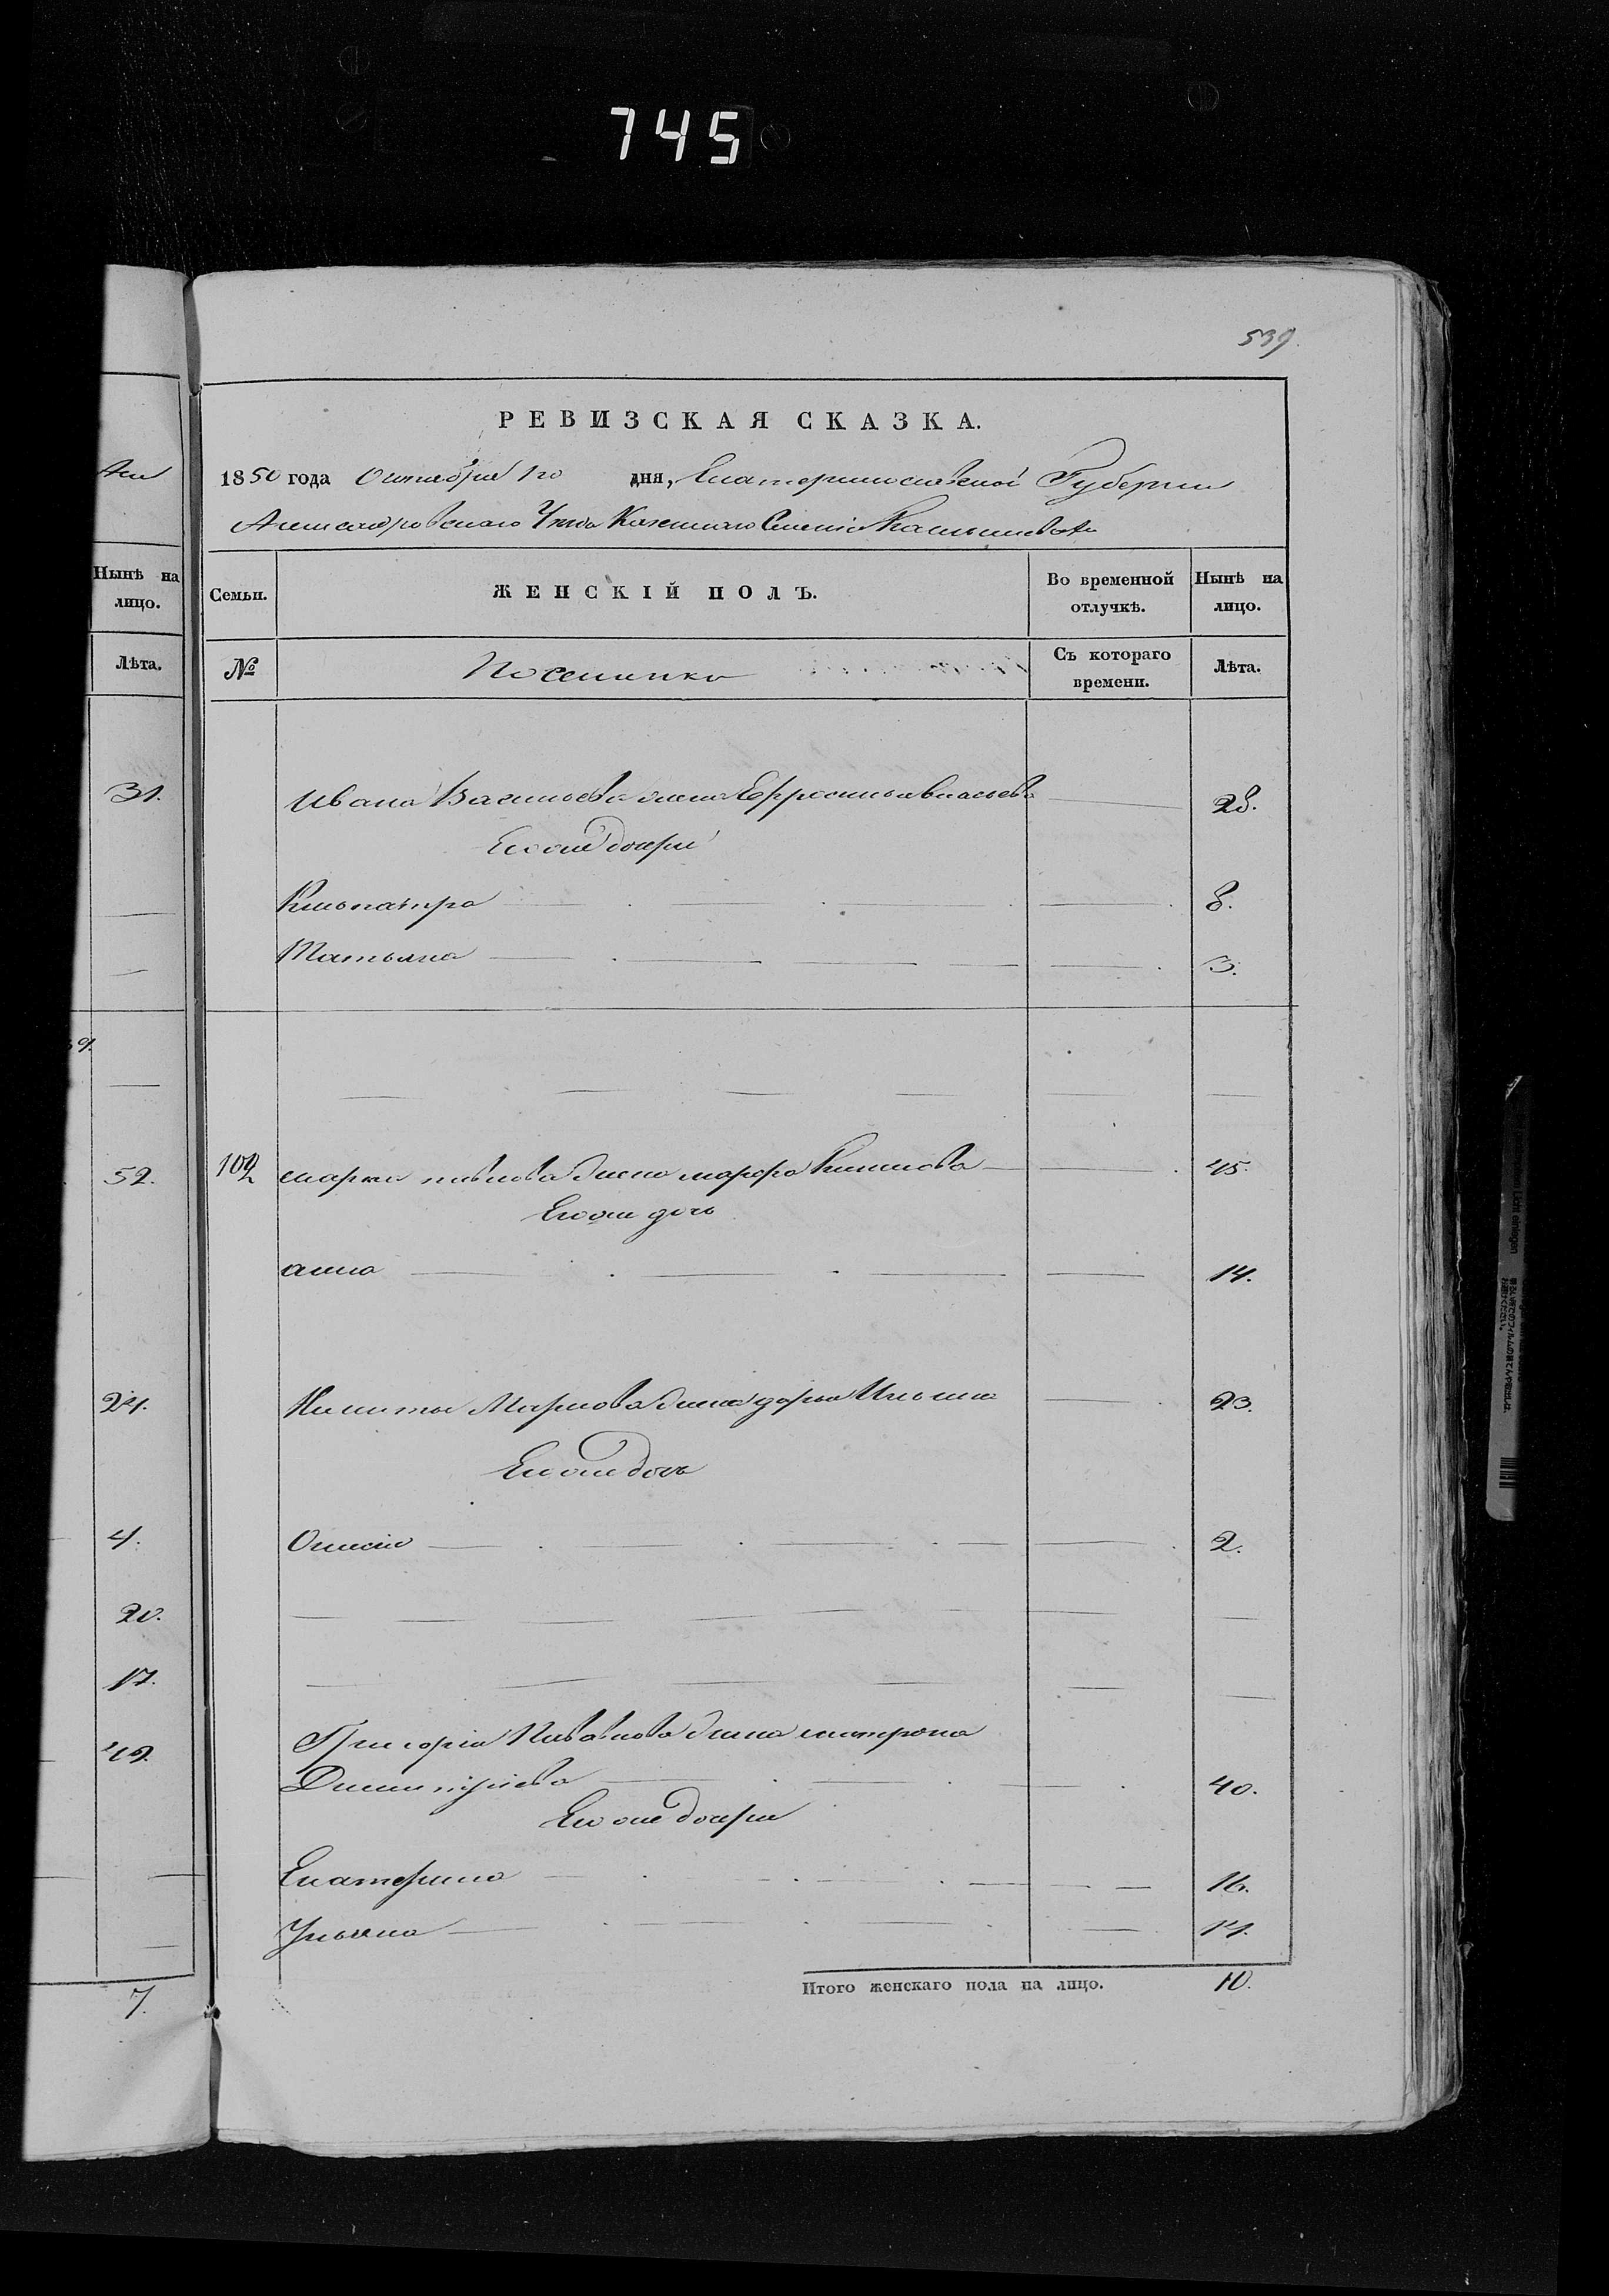 745
539.
РЕВИЗСКАЯ СКАЗКА.
1850 года Октября 1го дня, Екатеринославской Губернии
Александровскаго Уезда Казеннаго Селения
Нынѣ на лицо.
Семьи.
ЖЕНСКІЙ ПОЛЪ.
Во временной отлучкѣ.
Нынѣ на лицо.
Лѣта.
№
Поселянки
Съ котораго времени.
Лѣта.
31.
Ивана Васильева жена Ефросинья Власьева 28.
Его же дочери
Клеопатра 8.
Татьяна 3.
52.
102 Марка Павлова жена Марфа 45.
Его же дочь
Анна 14.
24.
Никиты Маркова жена Дарья Ильина 23.
Его же дочь
4.
2.
20.
17.
Григорія Павлова жена Матрона
49.
Димитріева 40.
Его же дочери
Екатерина 16.
Ульяна 14.
7.
Итого женскаго пола на лицо. 10.